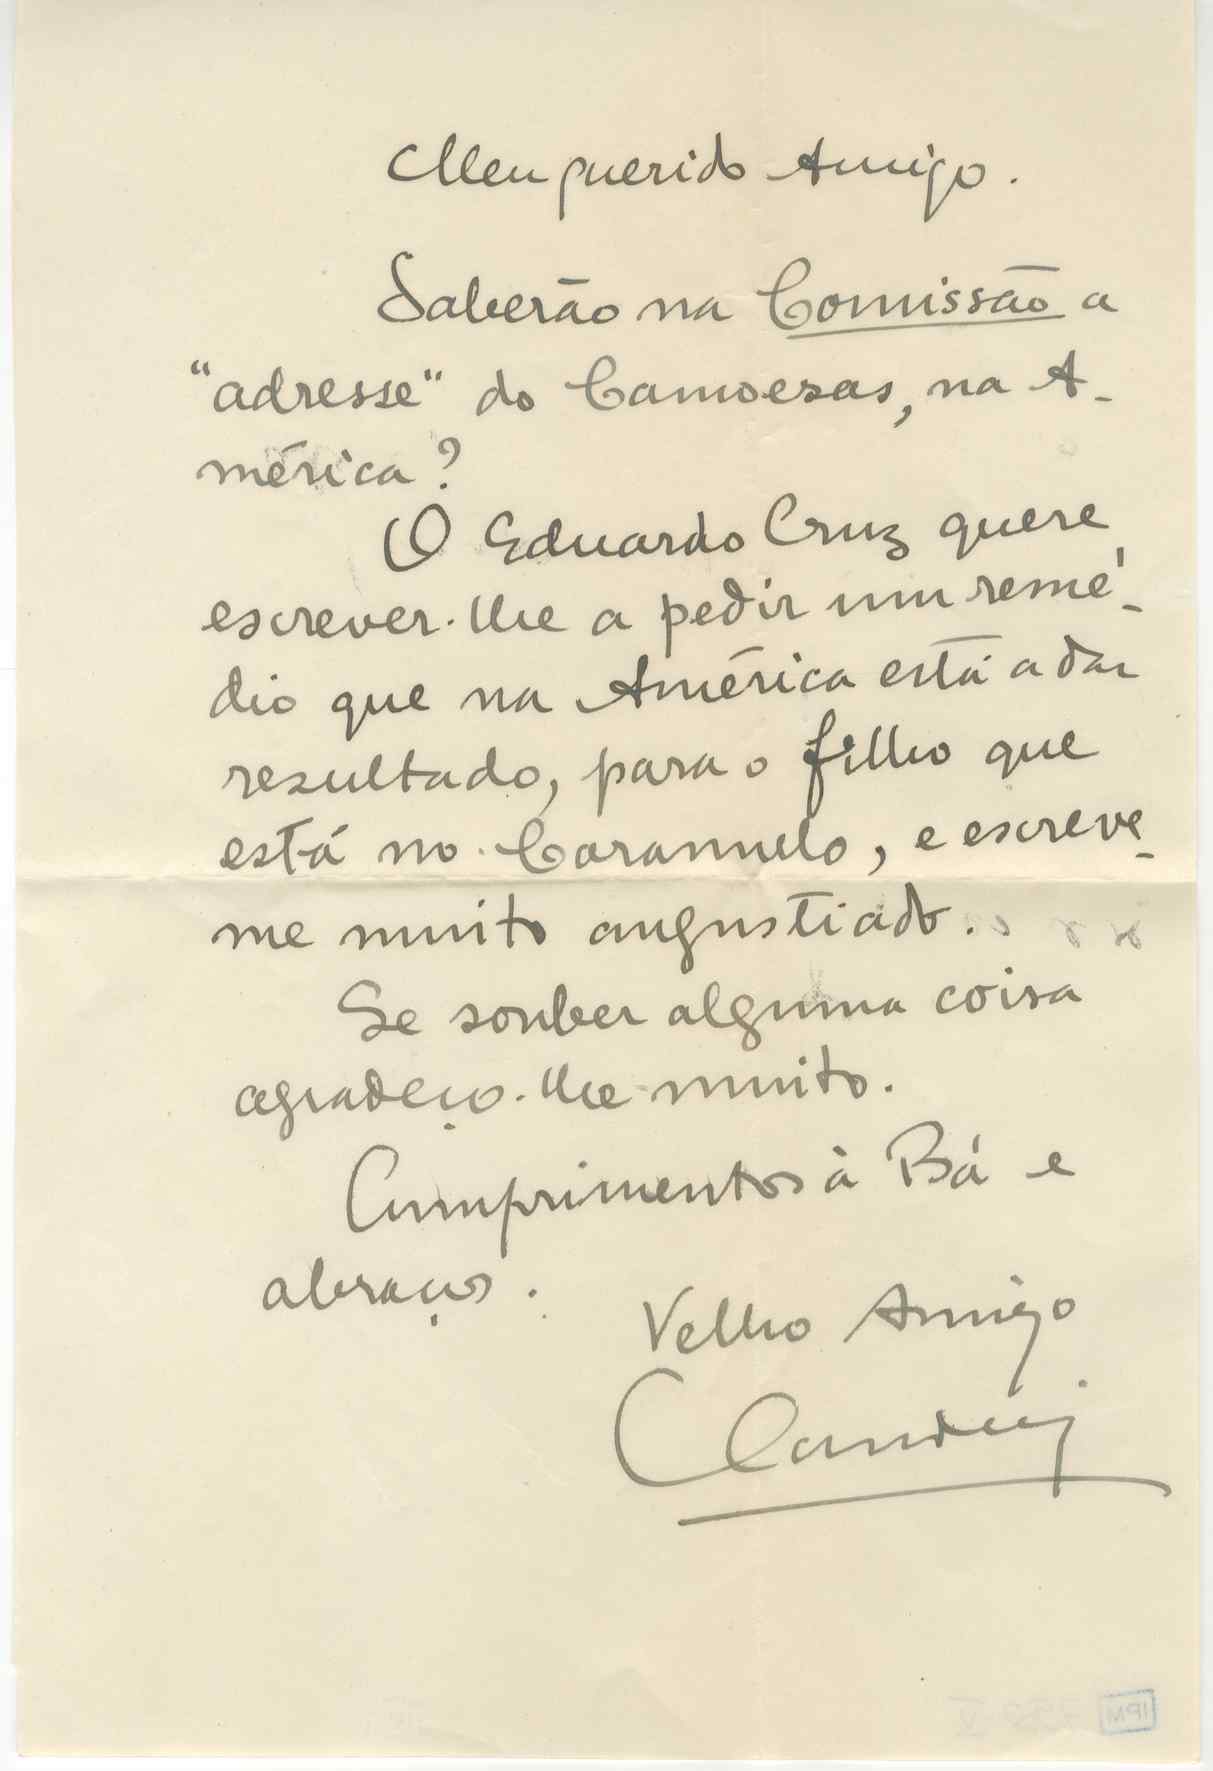 Meu querido Amigo.
Saberão na Comissão a
"adresse" do Camoesas, na A-
mérica?
O Eduardo Cruz quere
escrever-lhe a pedir um remé-
dio que na América está a dar
resultado, para o filho que
está no Caramulo, e escreve-
me muito angustiado.
Se souber alguma coisa
agradeço-lhe muito.
Cumprimentos à Bá e
abraços.
Velho Amigo
IPM